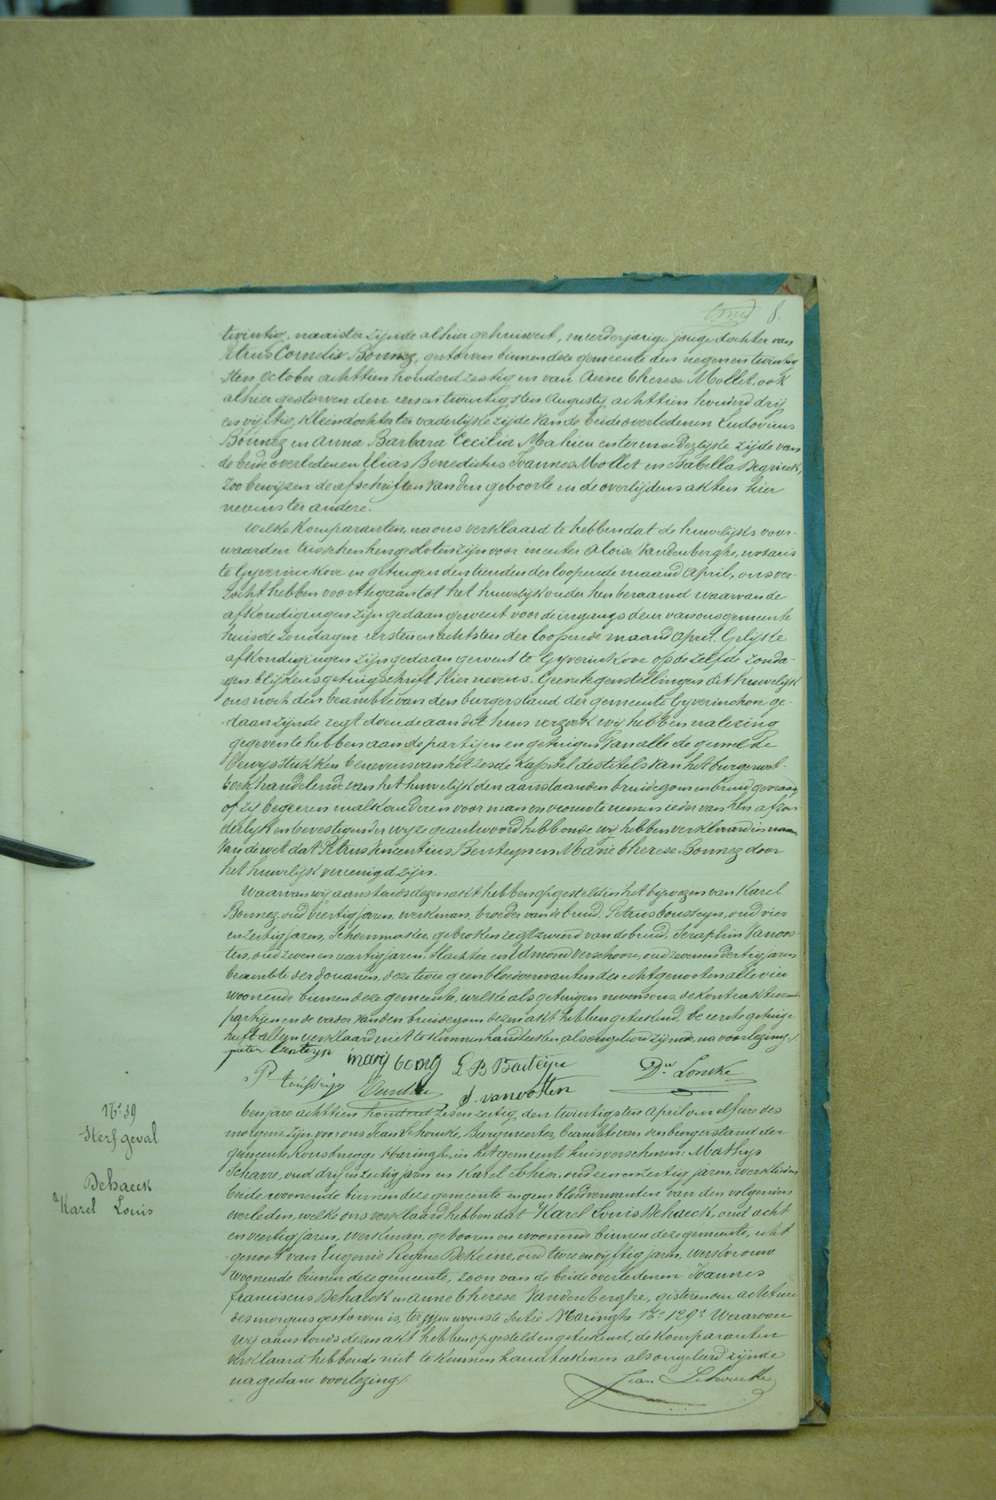 8.
twintig, naaister zijnde alhier gehuisvest, meerderjarige jonge dochter van
Petrus Cornelis Bonnez, gestorven binnen deze gemeente den negenentwintig
sten october achttien honderd zestig en van Anne Therese Mollet, ook
alhier gestorven den eenentwintigsten Augusty achttien honderd drij
en vijftig, kleindochter ter vaderlijke zijde van de beide overledenen Ludovicus
Bonnez en Anna Barbara Cecilia Mahieu en ter moederlijke zijde van
de beide overledenen Elias Benedictus Joannes Mollet en Isabella Degrieck,
zoo bewijzen de afschriften van den geboorte en de overlijdens akten hier
nevens ter andere.
Welke komparanten, na ons verklaard te hebben dat de huwelijks voor-
waarden tusschen hen gesloten zijn voor meester Aloïse Vandenberghe, notaris
te Gyverinckove en getuigen den tienden der loopende maand April, ons ver-
zocht hebben voort te gaan tot het huwelijk onder hen beraamd waarvan de
afkondigingen zijn gedaan geweest voor de ingang deur van ons gemeente
huis de zondagen eersten en achtsten der loopende maand April. Gelijke
afkondigingen zijn gedaan geweest te Gyverinkove op de zelfde zonda-
gen blijkens getuigschrift hier nevens. Geene tegenstellingen dit huwelijk
ons noch den beambte van den burgerstand der gemeente Gyverinchove ge-
daan zijnde regt doende aan dit huns verzoek wij hebben na lezing
gegeven te hebben aan de partijen en getuigen van alle de gemelde
bewijsstukken benevens van het zesde kapittel des titels van het burgerwet-
boek handelende van het huwelijk den aanstaanden bruidegom en bruid gevraagd
of zij begeeren malkanderen voor man en vrouw te nemen ieder van hen afzon
derlijk en bevestigender wijze geantwoord hebbende wij hebben verklaard in naam
van de wet dat Petrus Vincentius Benteyn en Marie Therese Bonnez door
het huwelijk vereenigd zijn.
Waarvan wij aanstonds dezen akt hebben opgesteld in het bijwezen van Karel
Bonnez, oud veertig jaren, werkman, broeder van de bruid, Petrus Bousteyn, oud vier
en zestig jaren, Schoenmaker, gebroken regtzweerd van de bruid, Seraphin Vanoo-
ten, oud zeven en veertig jaren, Slachter en Edmond Verschoore, oud zevenendertig jaren
beambte der douanen, deze twee geen bloedverwanten der echtgenooten alle vier
woonende binnen deze gemeente, welke als getuigen nevens ons, de kontrakteerende
partijen en de vader van den bruidegom dezen akt hebben geteekend. de eerste getuige
heeft alleen verklaard niet te kunnen handteeken als ongeleerd zijnde, na voorlezing.
marij bonez
J. vanooten
Dr. Loncke
N° 39
Sterfgeval
Dehaeck
Karel Louis
Ten jare achttien honderd zes en zestig den twintigsten April om elf ure des
morgens zijn voor ons Jean Lehoucke, Burgmeester, beambte van den burgerstand der
gemeente Rousbrugge Haringhe, in het gemeente huis verschenen Mathys
Schavre, oud drij en zestig jaren en Karel Ethier, oud een en zestig jaren, werklieden
beide woonende binnen deze gemeente en geen bloedverwanten van den volgenden
overleden, welke ons verklaard hebben dat Karel Louis Dehaeck, oud acht
en veertig jaren, werkman, geboren en woonende binnen deze gemeente, echt
genoot van Eugenie Regina Dekeene, oud twee en vijftig jaren, werkvrouw
woonende binnen deze gemeente, zoon van de beide overledenen Joannes
Franciscus Dehaeck en Anne Therese Vandenberghe, gisteren om acht ure
des morgens gestorven is, ter zijner woonste sectie Haringhe N° 129. Waarvan
wij aanstonds dezen akt hebben opgesteld en geteekend, de komparanten
verklaard hebbende niet te kunnen handteekenen als ongeleerd zijnde
na gedane voorlezing.
Jean Lehoucke